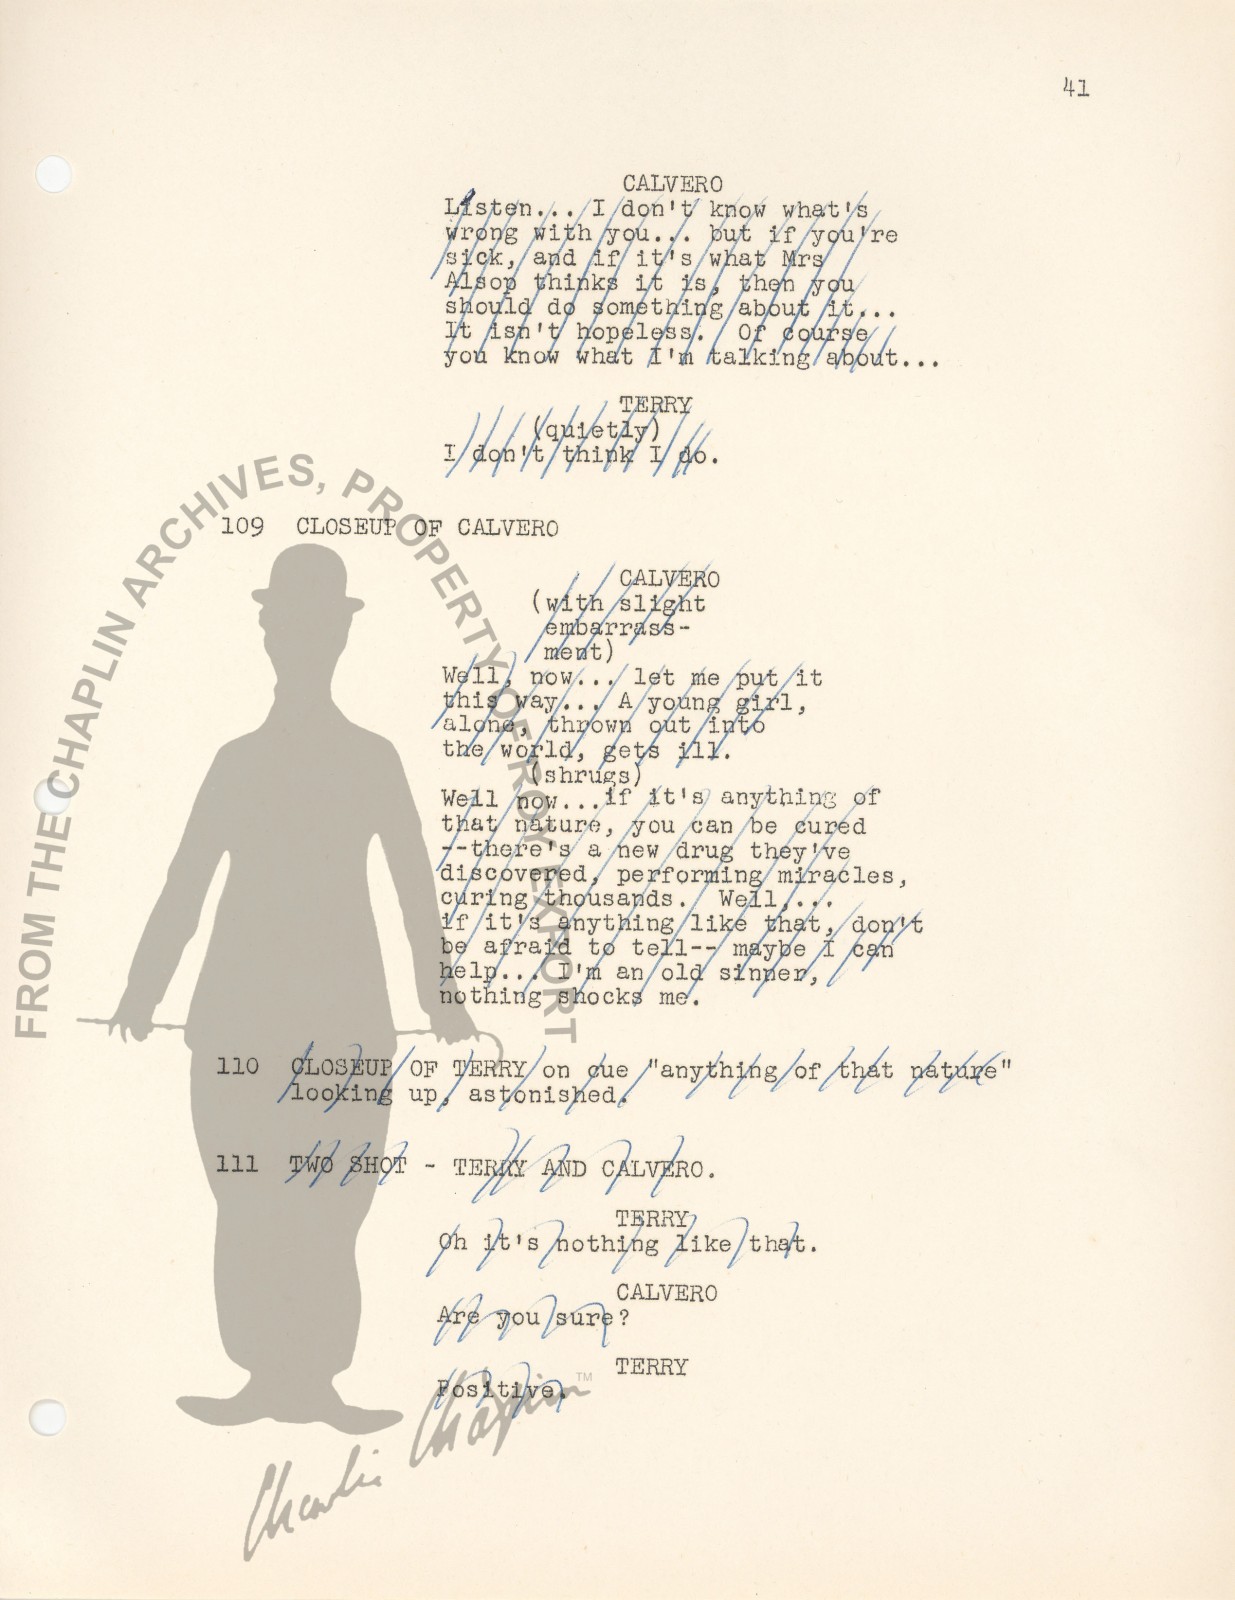 41
CALVERO
Listen... I don't know what's
wrong with you... but if you're
sick, and if it's what Mrs
Alsop thinks it is, then you
should do something about it...
It isn't hopeless.  Of course
you know what I'm talking about...
TERRY
(quietly)
I don't think I do.
109  CLOSEUP OF CALVERO
CALVERO
(with slight
embarrass-
ment)
Well, now... let me put it
this way... A young girl,
alone, thrown out into
the world, gets ill.
(shrugs)
Well now...if it's anything of
that nature, you can be cured
--there's a new drug they've
discovered, performing miracles,
curing thousands.  Well,...
if it's anything like that, don't
be afraid to tell-- maybe I can
help... I'm an old sinner,
nothing shocks me.
110  CLOSEUP OF TERRY on cue "anything of that nature"
looking up, astonished.
111  TWO SHOT - TERRY AND CALVERO.
TERRY
Oh it's nothing like that.
CALVERO
Are you sure?
TERRY
Positive.
FROM THE CHAPLIN ARCHIVES, PROPERTY OF ROY EXPORT
Charlie Chaplin™